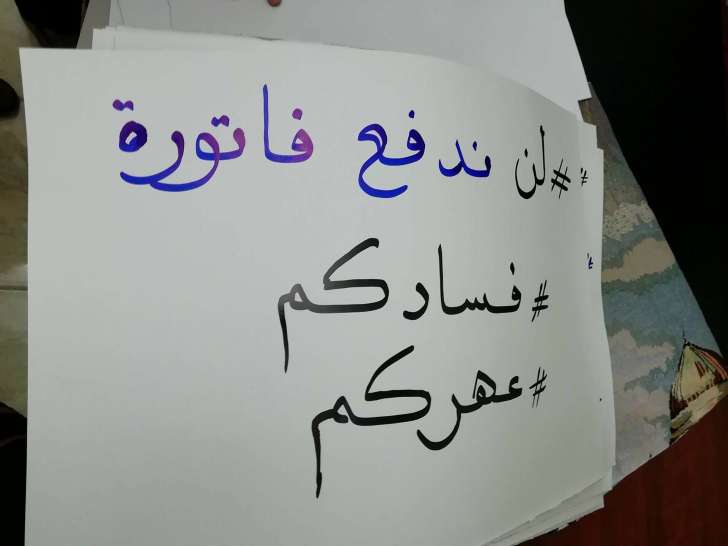 ##لن ندفع فاتورة
#فسادكم
#عهركم